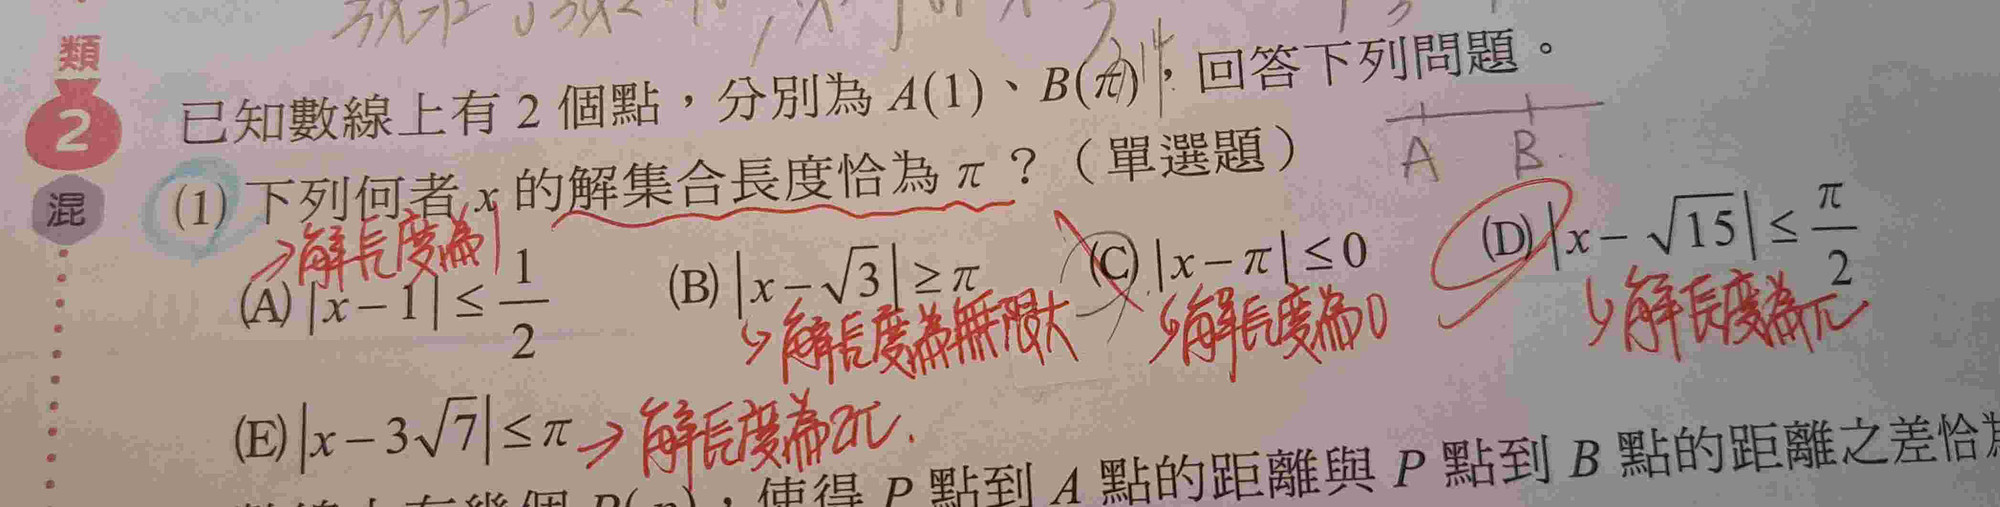 類
2
混
已知數線上有 2 個點，分別為 A(1)、B(π)，回答下列問題。
A B
(1) 下列何者 x 的解集合長度恰為 π？（單選題）
→解長度為1
(A) |x − 1| ≤ 1/2 (B) |x − √3| ≥ π (C) |x − π| ≤ 0 (D) |x − √15| ≤ π/2
↳解長度為無限大 ↳解長度為0 ↳解長度為π
(E) |x − 3√7| ≤ π →解長度為2π.
P(p)，使得 P 點到 A 點的距離與 P 點到 B 點的距離之差恰